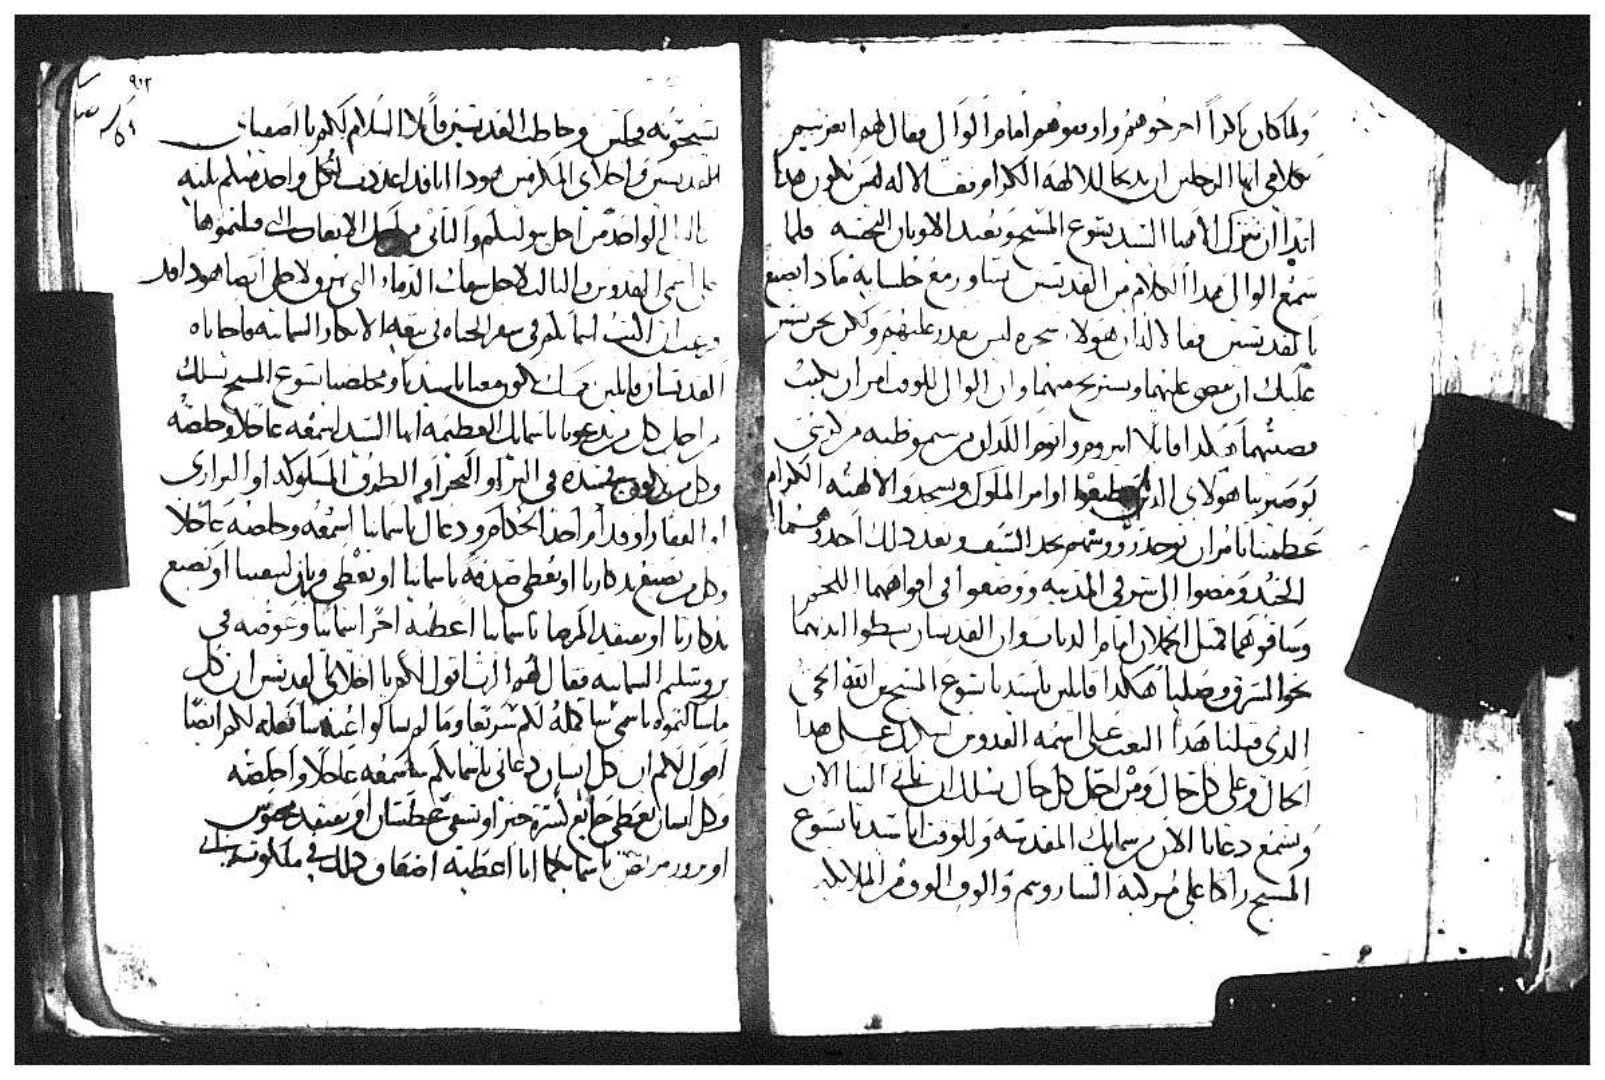 ولما كان باكراً اخرجوهم واوقفوهم امام الوال فقال لهم ايعزيتم
بكلامي ايها الرجلين ان تدبحا للالهه الكرام فقالا له ليس يكون هدا
ابداً ان نترك الاهنا السيد يسوع المسيح ونعبد الاوتان النجسه فلما
سمع الوال هدا الكلام من القديسين تشاور مع جلسايه مادا يصنع
بالقديسين فقالا لان هولا سحره ليس يقدر عليهم ولكن نحن نشير
عليك ان تقضي عليهما ونستريح منهما وان الوال للوقت امر ان يكتب
قضيتهما هكدا قايلا ابيروه واتوم اللدان من سموطيه من كرسي
بوصير بنا هولاي الدين لم يطيعوا اوامر الملوك ويسجدوا لالهته الكرام
عظمتنا تامر ان توخد رووسهم بحد السيف وبعد دلك اخدوهما
الجند ومضوا الى شرقي المدينه ووضعوا في افواههما اللجم
وساقوهما مثل الخملان امام الدياب وان القديسان بسطوا ايديهما
نحو الشرق وصليا هكدا قايلين ياسيدنا يسوع المسيح ابن الله الحي
الدي قبلنا هدا التعب على اسمه القدوس نسالك على هدا
الحال وعلى كل حال ومن اجل كل حال نسالك ان تاتي الينا الان
وتسمع دعانا الان من سمايك المقدسه وللوقت اتا سيدنا يسوع
المسيح راكبا على مركبة الشاروبيم والوف الوف من الملايكه
يسبحونه فجلس وخاطب القديسين قايلا السلام لكم يا اصفياي
القديسين واخلاي المكرمين هودا انا قد اعددت لكل واحد منكم تلته
اكاليل الواحد من اجل بتوليتكم والتاني من اجل الاتعاب التي قبلتموها
على اسمي القدوس والتالت لاجل سفك الدماء التي تهرق لاجلي ايضا هودا قد
رعبت ان اكتب اسمايكم في سفر الحياه في بيعة الابكار السمايه فاجاباه
القديسان قايلين نمجدك تكون معنا ياسيدنا ومخلصنا يسوع المسيح نسلك
من اجل كل من يدعونا باسمايك العظيمه ايها السيد اسمعه عاجلا وخلصه
وكل من يكون في شده في البر او البحر او الطرق المسلوكه او البراري
او القفار او قدام احد الحكام ودعاك باسماينا اسمعه وخلصه عاجلا
وكل من يصنع تدكارنا او يعطي صدقه باسماينا او يعطي قربان لبيعتنا او يصنع
تدكارنا او يفتقد المرضا باسماينا اعطيه اجرا سمائيا وعوضه في
يروشليم السمايه فقال لهم الرب اقول لكم يا اخلاي القديسين ان كل
ما سالتموه باسمي ساكمله لكم سريعا وما لم تسالوا عنه سافعله لكم ايضا
اقول لكم ان كل انسان دعاني باسمايكم ساسمعه عاجلا واخلصه
وكل انسان يعطي جايع كسرة خبز او يسقي عطشان او يفتقد محبوس
او يزور مريض باسمايكما انا اعطيه اضعاف دلك في ملكوت